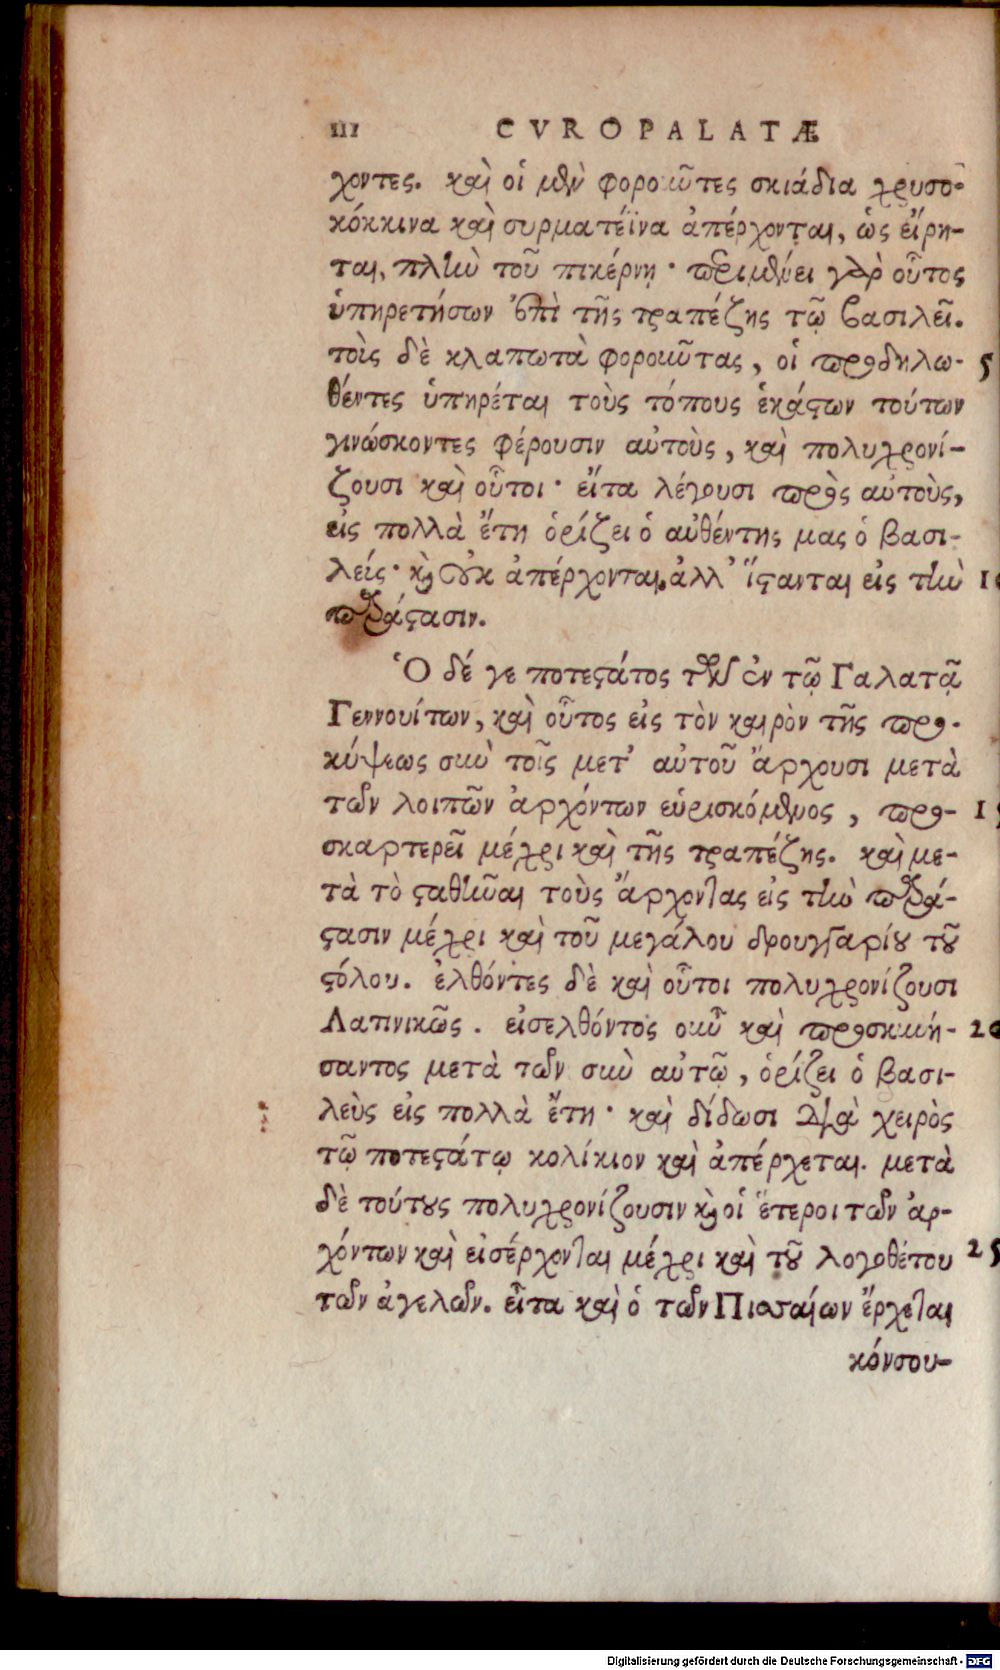 111 CVROPALATÆ
χοντες. καὶ οἱ μὲν φοροῦντες σκιάδια χρυσο-
κόκκινα καὶ συρματέϊνα ἀπέρχονται, ὡς εἴρη-
ται, πλὴν τοῦ πικέρνη· περιμένει γὰρ οὗτος
ὑπηρετήσων ἐπὶ τῆς τραπέζης τῷ βασιλεῖ.
τοὶς δὲ κλαπωτὰ φοροῦντας, οἱ προδηλω- 5
θέντες ὑπηρέται τοὺς τόπους ἑκάστων τούτων
γινώσκοντες φέρουσιν αὐτοὺς, καὶ πολυχρονί-
ζουσι καὶ οὗτοι· εἴτα λέγουσι πρὸς αὐτοὺς,
εἰς πολλὰ ἔτη ὁρίζει ὁ αὐθέντης μας ὁ βασι-
λείς· καὶ οὐκ ἀπέρχονται, ἀλλ' ἵστανται εἰς τὴν 10
παράστασιν.
Ὁ δέ γε ποτεστάτος τῶν ἐν τῷ Γαλατᾷ
Γεννουίτων, καὶ οὗτος εἰς τὸν καιρὸν τῆς προ-
κύψεως σὺν τοῖς μετ' αὐτοῦ ἄρχουσι μετὰ
τῶν λοιπῶν ἀρχόντων εὑρισκόμενος, προ- 15
σκαρτερεῖ μέχρι καὶ τῆς τραπέζης. καὶ με-
τὰ τὸ σταθῆναι τοὺς ἄρχοντας εἰς τὴν παρά-
στασιν μέχρι καὶ τοῦ μεγάλου δρουγγαρίου τοῦ
στόλου. ἐλθόντες δὲ καὶ οὗτοι πολυχρονίζουσι
Λατινικῶς. εἰσελθόντος οὖν καὶ προσκυνή- 20
σαντος μετὰ τῶν σὺν αὐτῷ, ὁρίζει ὁ βασι-
λεὺς εἰς πολλὰ ἔτη· καὶ δίδωσι διὰ χειρὸς
τῷ ποτεστάτῳ κολίκιον καὶ ἀπέρχεται. μετὰ
δὲ τούτους πολυχρονίζουσιν καὶ οἱ ἕτεροι τῶν ἀρ-
χόντων καὶ εἰσέρχονται μέχρι καὶ τοῦ λογοθέτου 25
τῶν ἀγελῶν. εἶτα καὶ ὁ τῶν Πισσαίων ἔρχεται
κόνσου-
Digitalisierung gefördert durch die Deutsche Forschungsgemeinschaft - DFG